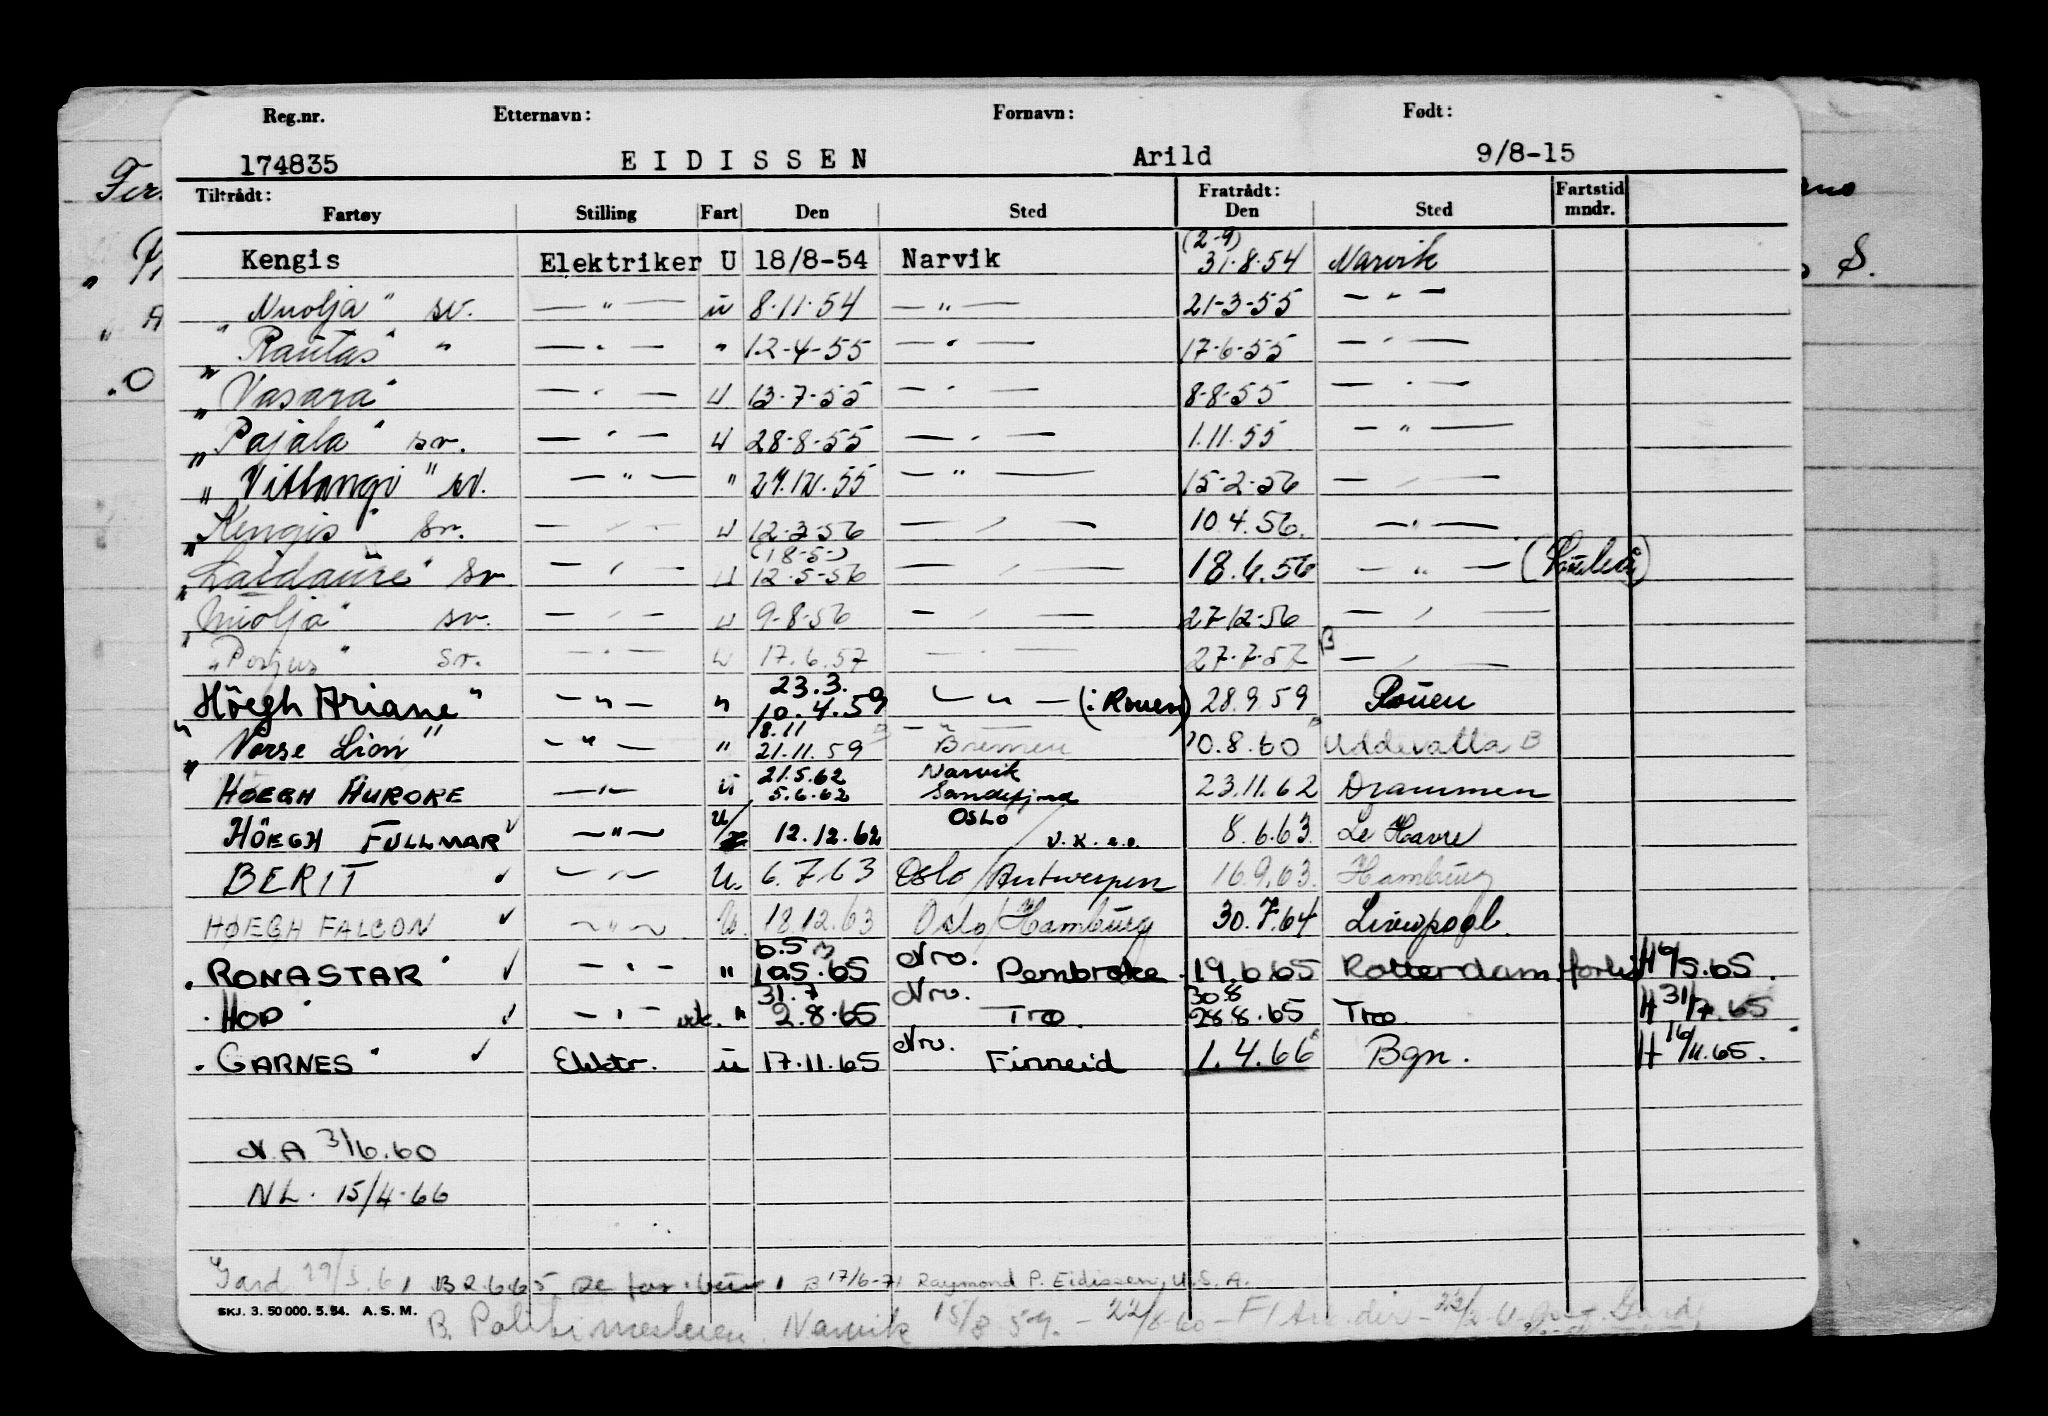 Reg.nr. Etternavn: Fornavn: Født:
174835 EIDISSEN Arild 9/8-15
Tiltrådt: Fratrådt: Fartstid
Fartøy Stilling Fart Den Sted Den Sted mndr.
(2-9)
Kengis Elektriker U 18/8-54 Narvik 31.8.54 Narvik
Nuolja" sv. — " — u 8.11.54 — " — 21-3-55 — " —
"Rautas" " — " — " 12-4-55 — " — 17-6-55 — " —
"Vasara" — " — u 13-7-55 — " — 8-8-55 — " —
"Pajala" sv. — " — u 28-8-55 — " — 1.11.55 — " —
"Vittangi" sv. — " — " 27.12.55 — " — 15-2-56 — " —
"Kengis" sv. — " — u 12-3-56 — " — 10.4.56. — " —
(18-5-)
"Laidaure" sv — " — u 12-5-56 — " — 18.6.56 — " — (Luleå)
"Nuolja" sv. — " — u 9-8-56 — " — 27-12-56 — " —
"Porjus" sv. — " — u 17.6.57 — " — 27.7.57 B — " —
23.3.
Höegh Ariane" — " — " 10.4.59 — " — (: Rouen) 28.9.59 Rouen
18.11
"Norse Lion" — " — " 21.11.59 Bremen 10.8.60 Uddevalla B
21.5.62 Narvik
HØEGH AURORE — " — u 5.6.62 Sandefjord 23.11.62 Drammen
OSLO
HÖEGH FULLMAR — " — U 12.12.62 v.k.e.o. 8.6.63 Le Havre
BERIT — " — U. 6.7.63 Oslo/Antwerpen 16.9.63. Hamburg
HØEGH FALCON — " — U. 18.12.63 Oslo/Hamburg 30.7.64 Liverpool.
6.5 Nrv.
"RONASTAR" — " — " 10.5.65 Pembroke 19.6.65 Rotterdam H 6/5.65.
31.7 Nrv. 30.8
"HOP" — " — " 2.8.65 Tro. 28.8.65 Tro H 31/7.65
Nrv.
"GARNES" Elektr. u 17.11.65 Finneid 1.4.66 Bgn. H 16/11.65.
N.A 3/6.60
NL. 15/4.66
B 17/6-71 Raymond P. Eidissen, U.S.A.
SKJ. 3. 50 000. 5. 54. A. S. M.
B. Politimesteren. Narvik 15/8 59. - 22/6-60